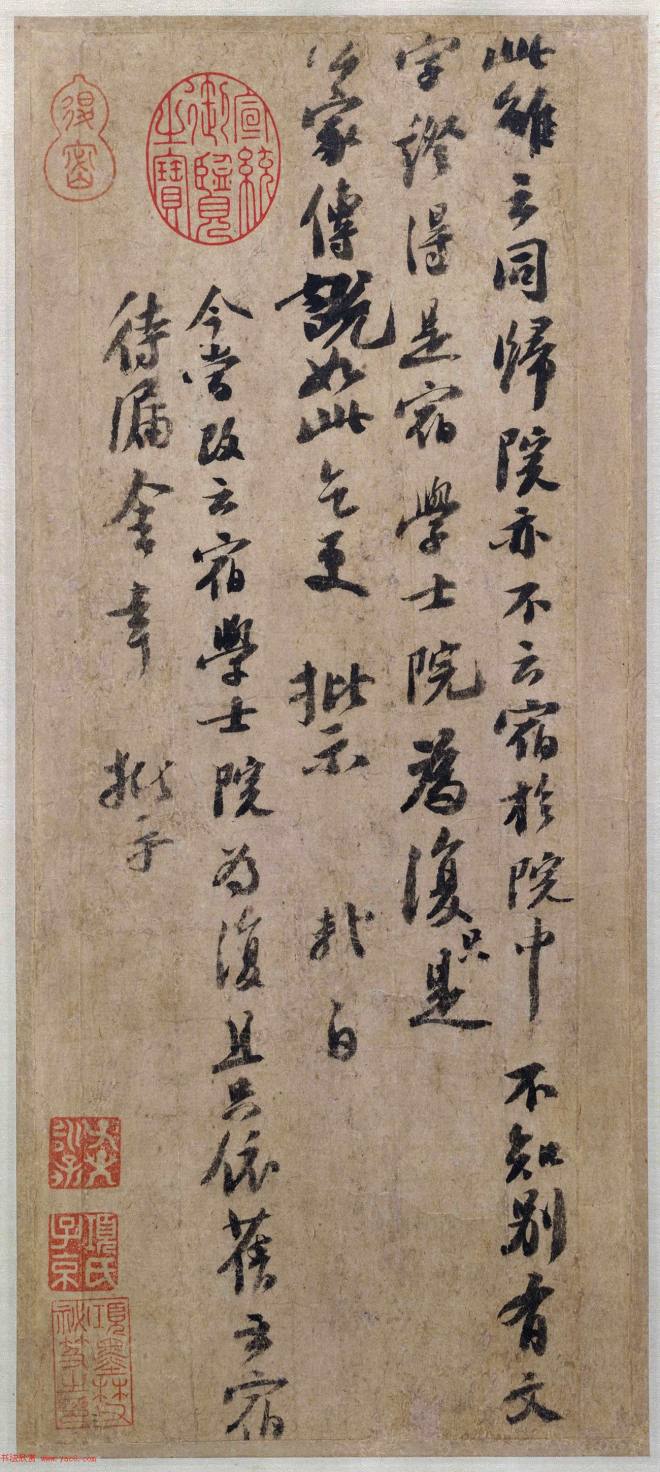 此雖云同歸院亦不云宿於院中 不知別有文
字證得是宿學士院為復只是
公家傳說如此乞更 批示 軾白
今嘗改云宿學士院為復且只依舊云宿
待漏舍幸 批示
宣統御覽之寶
項氏子京
書法欣賞 www.yac8.com